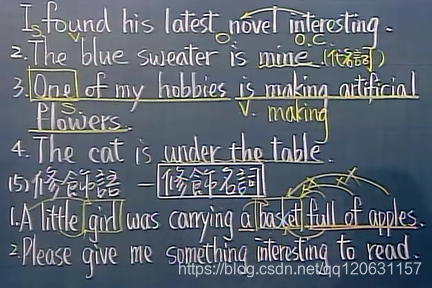 I found his latest novel interesting.
S. V O O.C
2. The blue sweater is mine. (代名詞)
3. One of my hobbies is making artificial
S. V. making
flowers.
4. The cat is under the table.
(5) 修飾語 — 修飾名詞
1. A little girl was carrying a basket full of apples.
2. Please give me something interesting to read.
https://blog.csdn.net/qq120631157